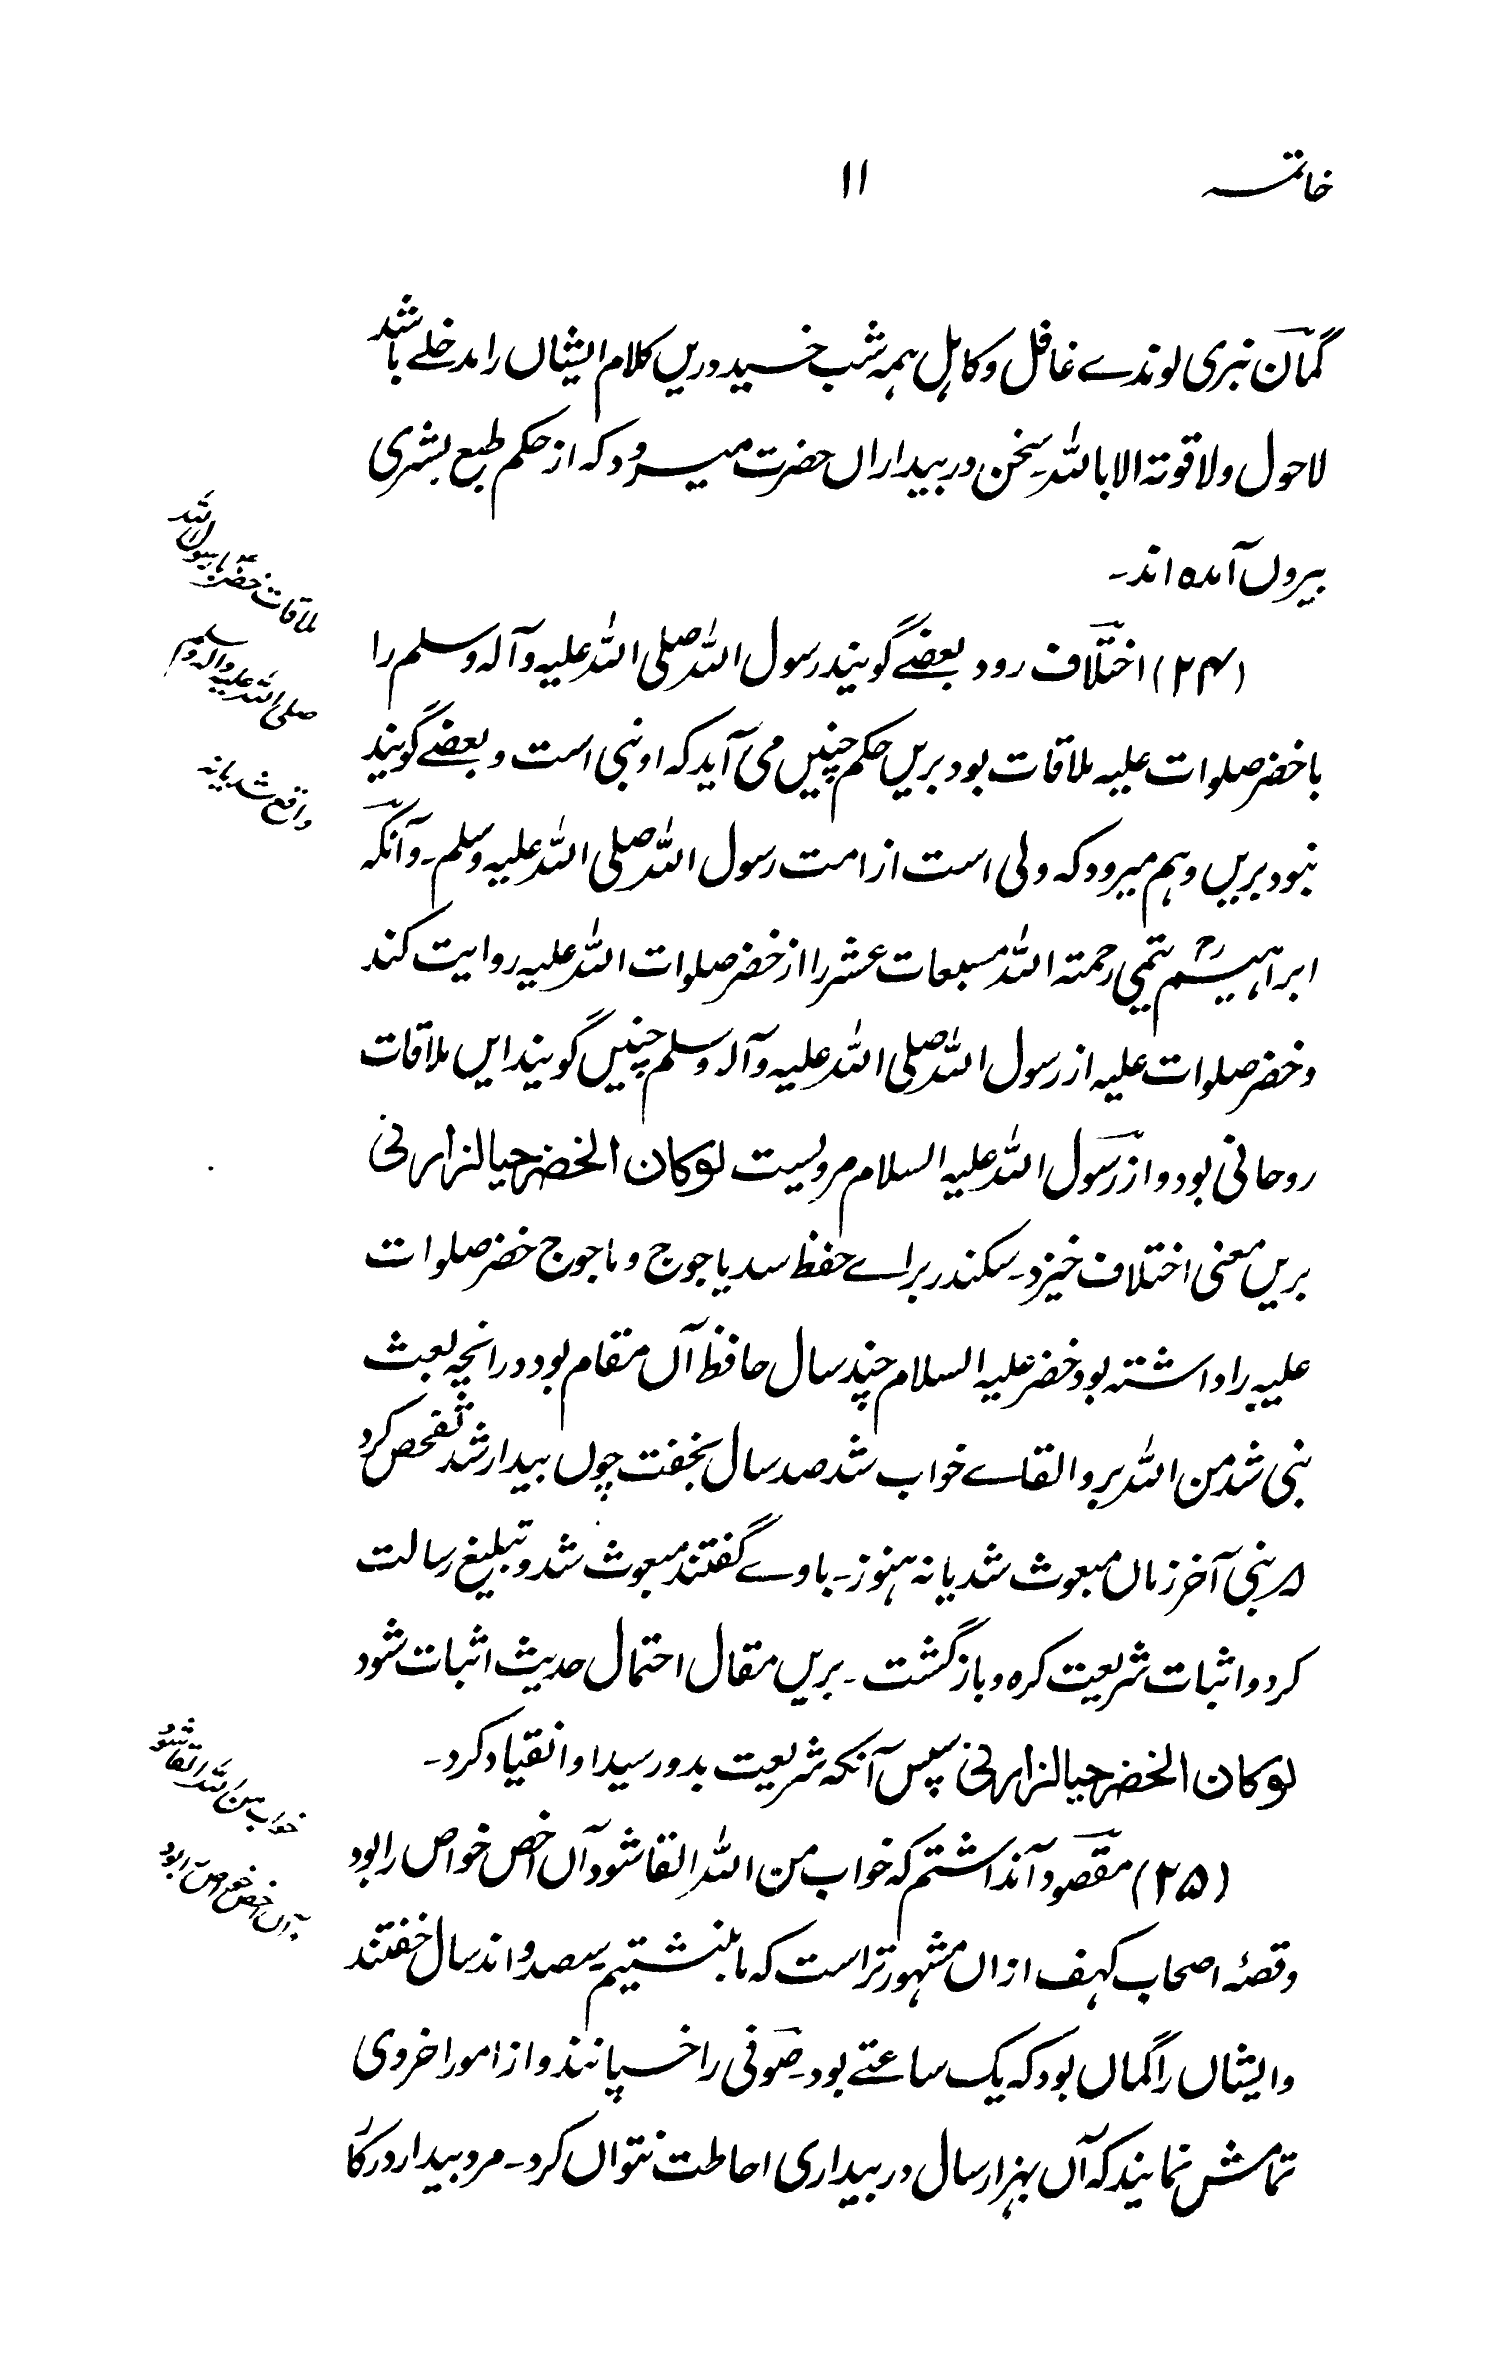 خاتمہ
۱۱
گمان نبری لوندے غافل و کاہل ہمہ شب خسپد دریں کلام ایشاں را مدخلے باشد
لاحول ولا قوتہ الا باللہ۔ سخن در بیداراں حضرت میرود کہ از حکم طبع بشری
بیروں آمدہ اند۔
(۲۴) اختلاف رود بعضے گویند رسول اللہ صلی اللہ علیہ وآلہ وسلم را
با خضر صلوات علیہ ملاقات بود بریں حکم چنیں می آید کہ او نبی است و بعضے گویند
نبود بریں وہم میرود کہ ولی است از امت رسول اللہ صلی اللہ علیہ وسلم۔ وآنکہ
ابراہیم تمیمی رحمتہ اللہ مسبعات عشر را از خضر صلوات اللہ علیہ روایت کند
وخضر صلوات علیہ از رسول اللہ صلی اللہ علیہ وآلہ وسلم چنیں گویند ایں ملاقات
روحانی بود و از رسول اللہ علیہ السلام مرویست لوکان الخضر حیا لزارنی
بریں معنی اختلاف خیزد۔ سکندر برائے حفظ سد یاجوج وماجوج خضر صلوات
علیہ را داشتہ بود خضر علیہ السلام چند سال حافظ آں مقام بود درانچہ بعث
نبی شد من اللہ برو القائے خواب شد صد سال بخفت چوں بیدار شد تفحص کرد
نبی آخر زماں مبعوث شد یا نہ ہنوز۔ باوے گفتند مبعوث شد و تبلیغ رسالت
کرد و اثبات شریعت کرہ و باز گشت۔ بریں مقال احتمال حدیث اثبات شود
لوکان الخضر حیا لزارنی سپس آنکہ شریعت بدو رسید او انقیاد کرد۔
(۲۵) مقصود آنداشتم کہ خواب من اللہ القا شود آں اخص خواص را بود
وقصۂ اصحاب کہف ازاں مشہور تر است کہ ما بنشتیم سیصد و اند سال خفتند
وایشاں را گماں بود کہ یک ساعتے بود۔ صوفی را خسپانند و از امور اخروی
تماشش نمایند کہ آں بہزار سال در بیداری احاطت نتواں کرد۔ مرد بیدار درکار
ملاقات خضر با رسول اللہ
صلی اللہ علیہ وآلہ وسلم
واقع شد یا نہ
خواب من اللہ القا شود
آں اخص خواص را بود